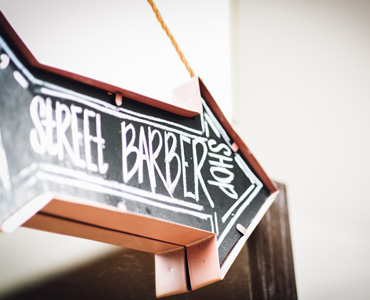 STREET BARBER SHOP